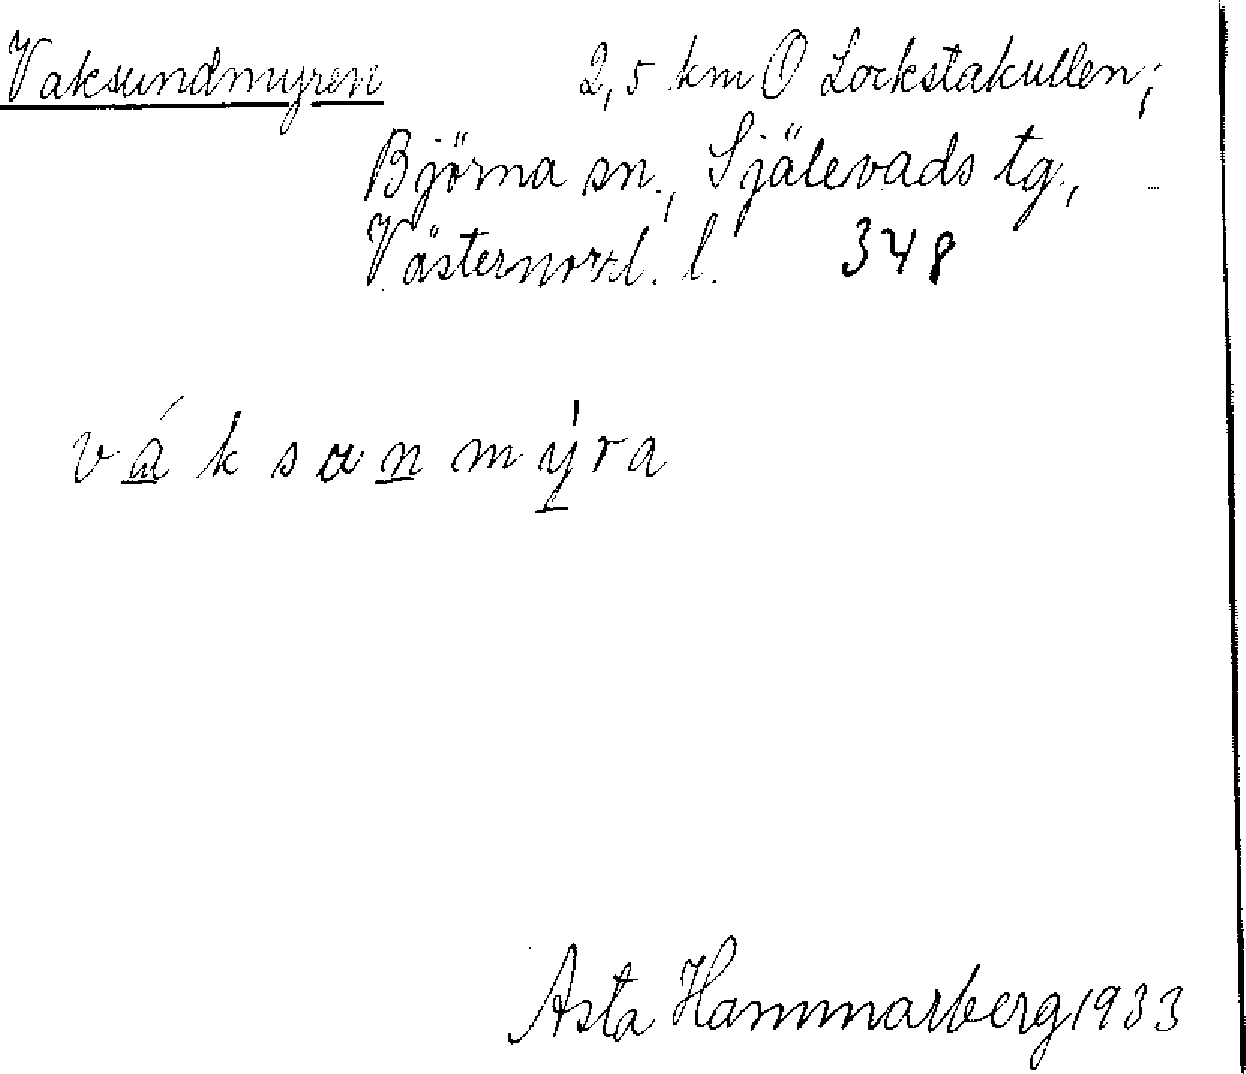 Vaksundmyren 2,5 km O Lockstakullen;
Björna sn., Själevads tg.,
Västernorrl. l. 348
váksanmýra
Asta Hammarberg 1933